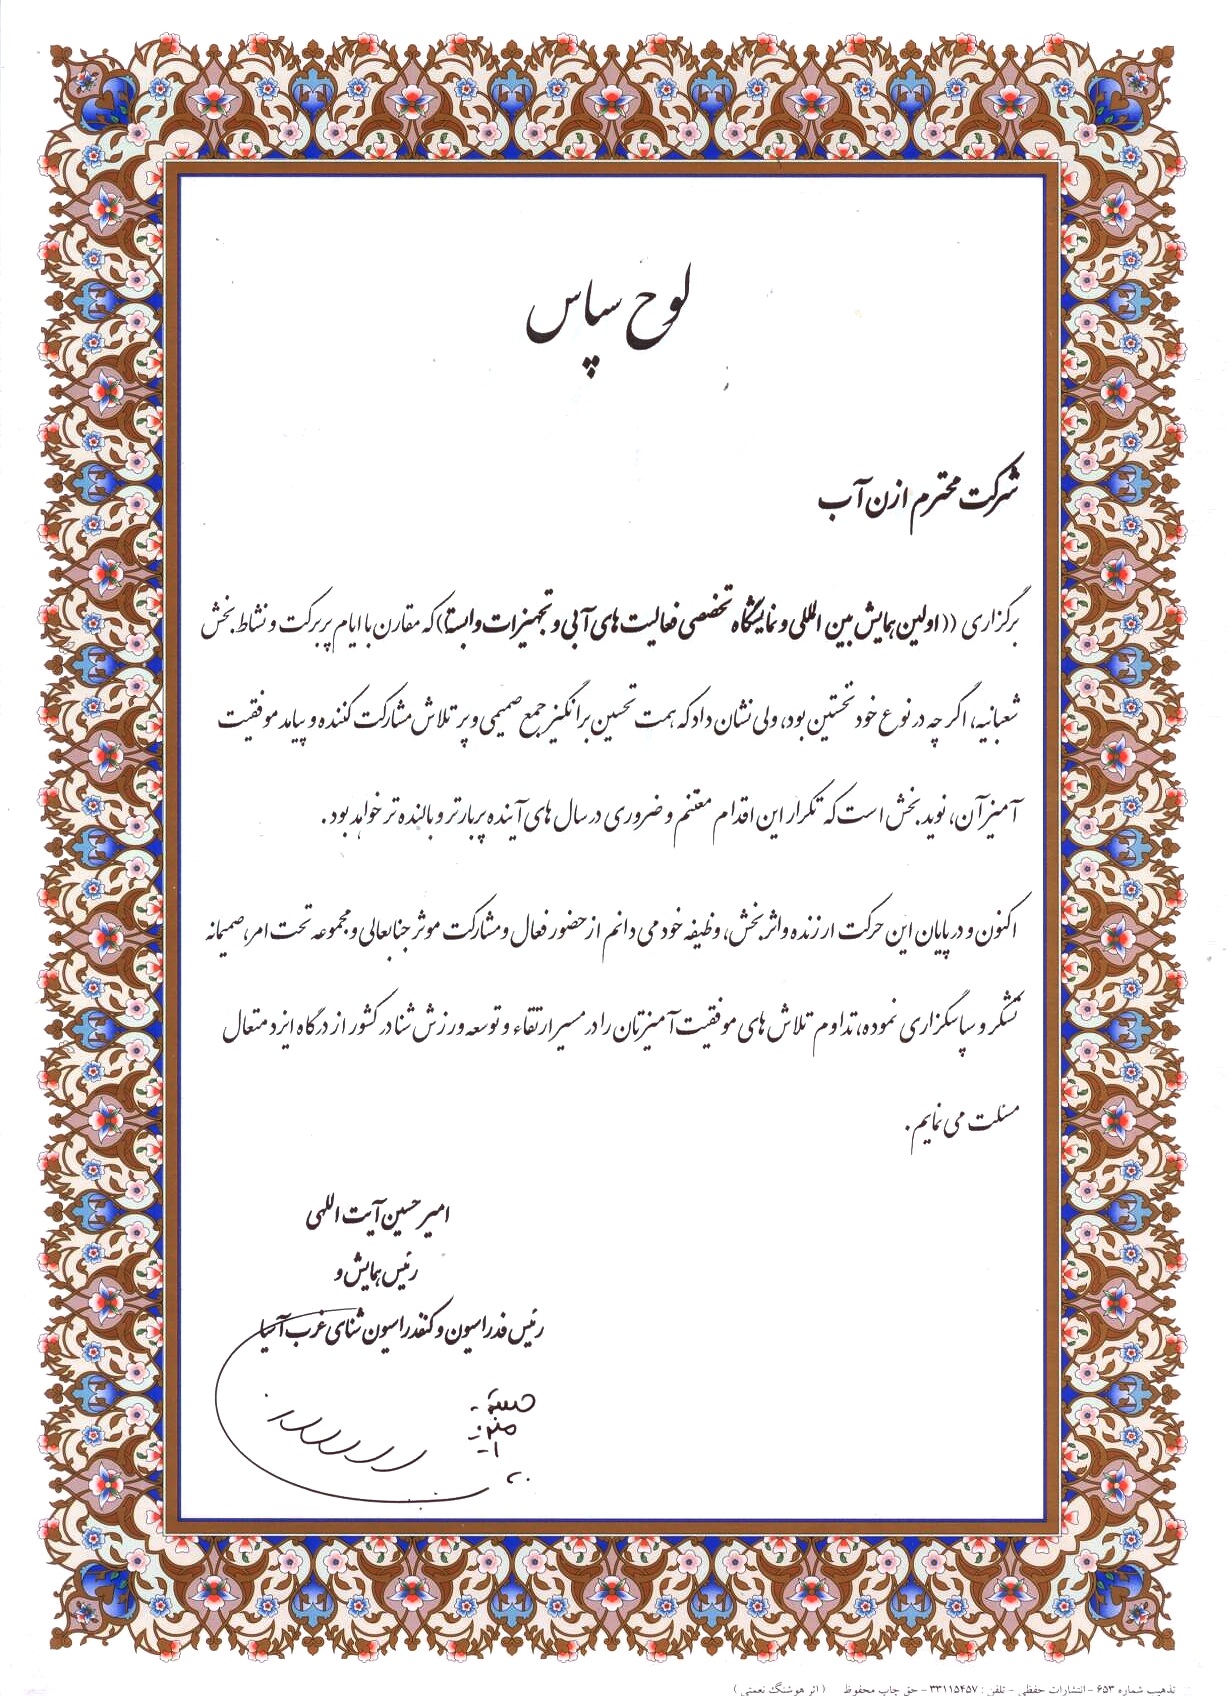 لوح سپاس
شرکت محترم ازن آب
برگزاری ((اولین همایش بین المللی و نمایشگاه تخصصی فعالیت های آبی و تجهیزات وابسته)) که مقارن با ایام پر برکت و نشاط بخش
شعبانیه، اگر چه در نوع خود نخستین بود، ولی نشان داد که همت تحسین برانگیز جمع صمیمی و پر تلاش مشارکت کننده و پیامد موفقیت
آمیز آن، نوید بخش است که تکرار این اقدام مغتنم و ضروری در سال های آینده پربارتر و بالنده تر خواهد بود.
اکنون و در پایان این حرکت ارزنده و اثر بخش، وظیفه خود می دانم از حضور فعال و مشارکت موثر جنابعالی و مجموعه تحت امر، صمیمانه
تشکر و سپاسگزاری نموده، تداوم تلاش های موفقیت آمیزتان را در مسیر ارتقاء و توسعه ورزش شنا در کشور از درگاه ایزد متعال
مسئلت می نمایم.
امیر حسین آیت اللهی
رئیس همایش و
رئیس فدراسیون و کنفدراسیون شنای غرب آسیا
تذهیب شماره ۶۵۳ - انتشارات حفظی - تلفن: ۳۳۱۱۵۴۵۷ - حق چاپ محفوظ (اثر هوشنگ نعمتی)